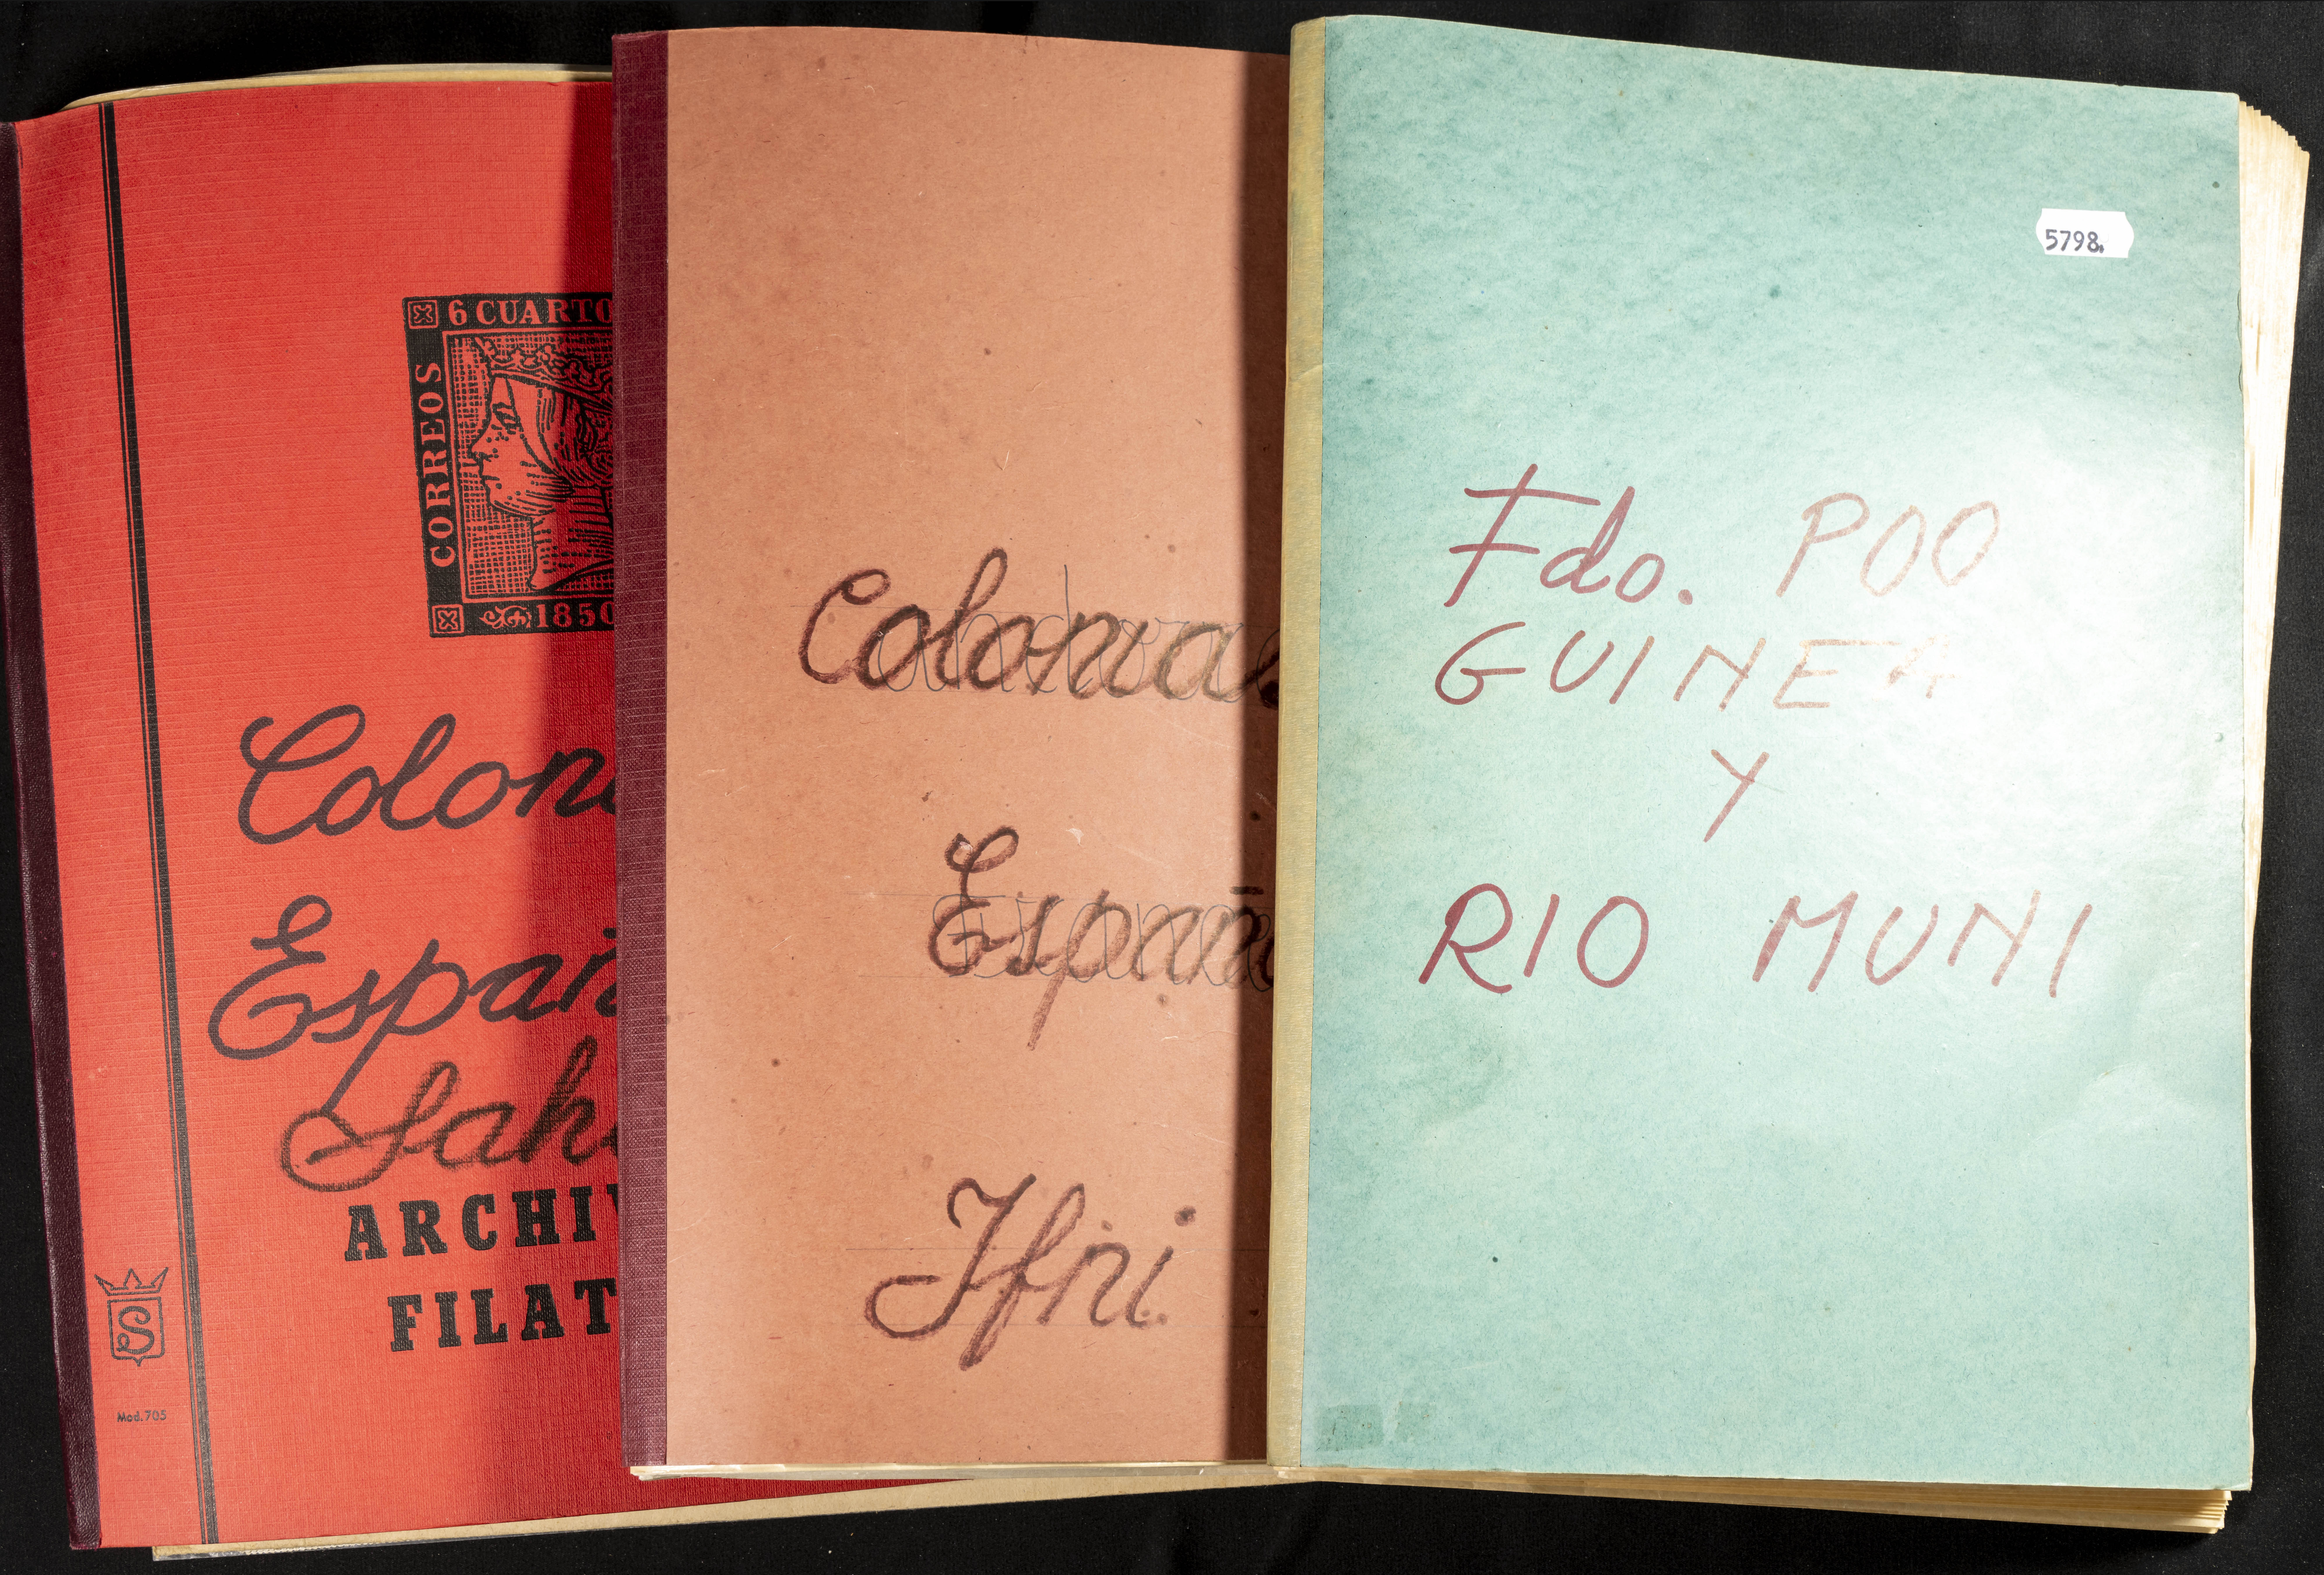 6 CUARTO
CORREOS
1850
Colon
Españ
Sah
ARCHI
FILAT
S
Mod. 705
Colonias
Españo
Ifni
5798.
Fdo. POO
GUINEA
Y
RIO MUNI